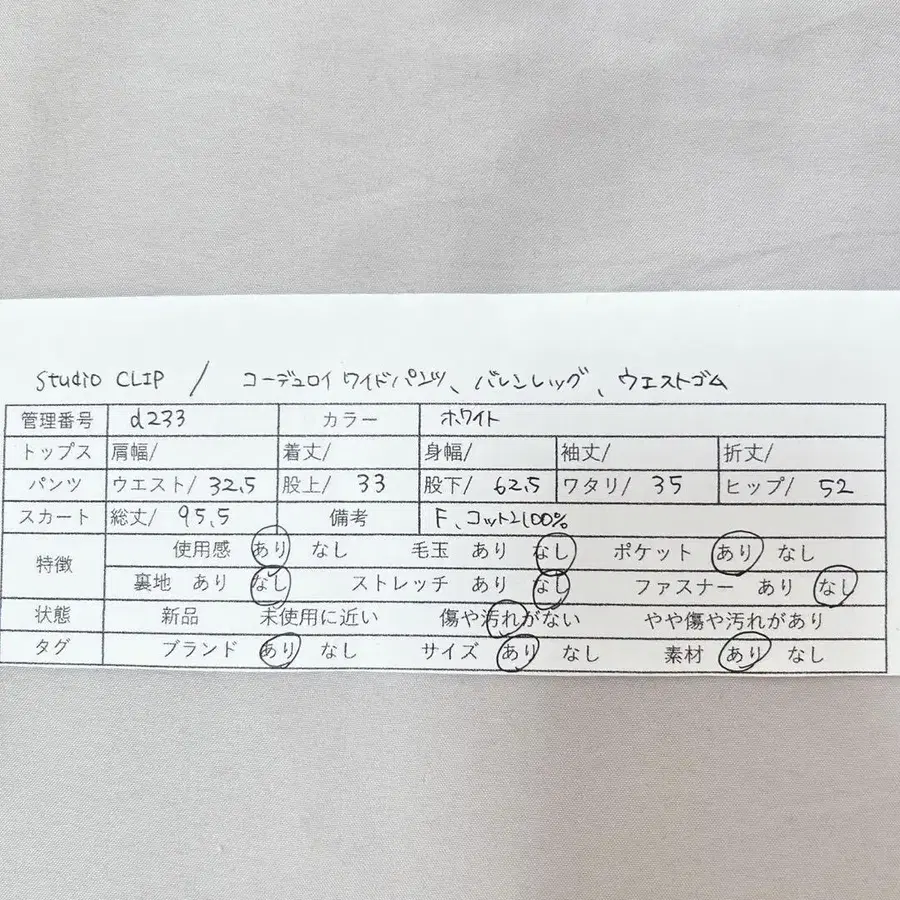 Studio CLIP / コーデュロイワイドパンツ、バレンレッグ、ウエストゴム
管理番号 d233 カラー ホワイト
トップス 肩幅/ 着丈/ 身幅/ 袖丈/ 折丈/
パンツ ウエスト/ 32.5 股上/ 33 股下/ 62.5 ワタリ/ 35 ヒップ/ 52
スカート 総丈/ 95.5 備考 F、コットン100%
特徴 使用感 あり なし 毛玉 あり なし ポケット あり なし
裏地 あり なし ストレッチ あり なし ファスナー あり なし
状態 新品 未使用に近い 傷や汚れがない やや傷や汚れがあり
タグ ブランド あり なし サイズ あり なし 素材 あり なし